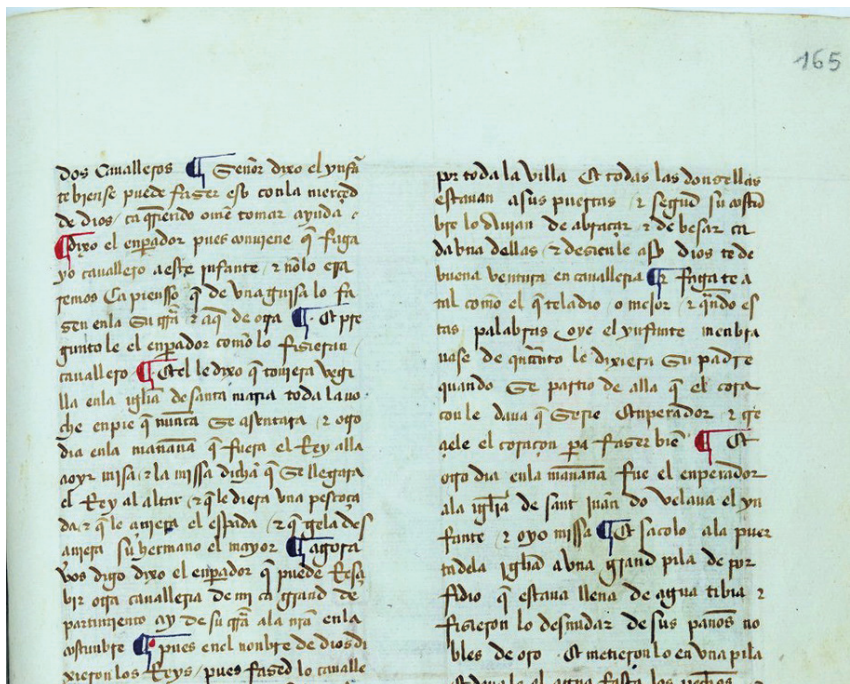 165
dos Caualleros ¶ Señor dixo el ynfã
te biense puede faser esto conla merçed
de dios / ca q̃riendo ome tomar ayuda
¶ Dixo el enp̃ador pues conuiene q̃ faga
yo cauallero a este infante / ⁊ nõlo era
remos Ca piensso q̃ de vna guisa lo fa
sen enla su tr̃ra ⁊ aq̃ de otra ¶ Et pre
gunto le el enp̃ador commo lo fisieran
cauallero ¶ Et el le dixo q̃ touiera vegi
lla enla igl̃ia de santa maria toda la no
che enpie q̃ nunca se asentara / ⁊ otro
dia enla mañana q̃ fuera el Rey alla
a oyr misa / ⁊ la missa dicha q̃ se llegara
el Rey al altar / ⁊ q̃ le diera vna pescoça
da / ⁊ q̃ le çiniera el espada / ⁊ q̃ gela des
çiniera su hermano el mayor ¶ agora
vos digo dixo el enp̃ador q̃ puede Resçi
bir otra caualleria de mi ca grand de
partimiento ay de su tr̃ra ala nr̃a enla
costunbre ¶ pues enel nonbre de dios di
xieron los Reys / pues fased lo caualle
por toda la villa Et todas las donzellas
estauan a sus puertas / ⁊ segund su costũ
bre lo auian de abraçar ⁊ de besar ca
da vna dellas / ⁊ desia le asy dios te de
buena ventura en caualleria ¶ ⁊ faga te a
tal commo el q̃ te la dio / o mejor / ⁊ q̃ndo es
tas palabras oye el ynfante menbra
uase de quanto le dixiera su padre
quando se partio de alla q̃ el cora
con le daua q̃ serie Enperador / ⁊ cre
çiele el coraçon pa faser bien ¶ Et
otro dia enla mañana fue el enperador
ala igl̃ia de sant iuan do velaua el yn
fante / ⁊ oyo missa ¶ Et sacolo ala puer
ta dela iglia a vna grand pila de por
fidio q̃ estaua llena de agua tibia ⁊
fisieron lo desnudar de sus paños no
bles de oro Et metieron lo en vna pila